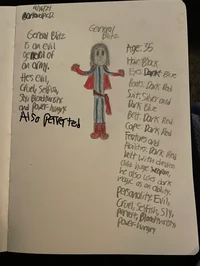 General Blitz
is an evil
general of
an army.
He's evil,
Cruel, Selfish,
Sly, Bloodthirsty
and Power-hungry
Also Perverted
General
Blitz
Age: 35
Hair: Black
Eyes: Dark Blue
Boots: Dark Red
Suit: Silver and
Dark Blue
Belt: Dark Red
Cape: Dark Red
Features and
Abilities: Dark Red
belt with
and huge weapon,
he also uses dark
magic as an ability.
Personality: Evil,
Cruel, Selfish, Sly,
Pervert, Bloodthirsty
Power-hungry